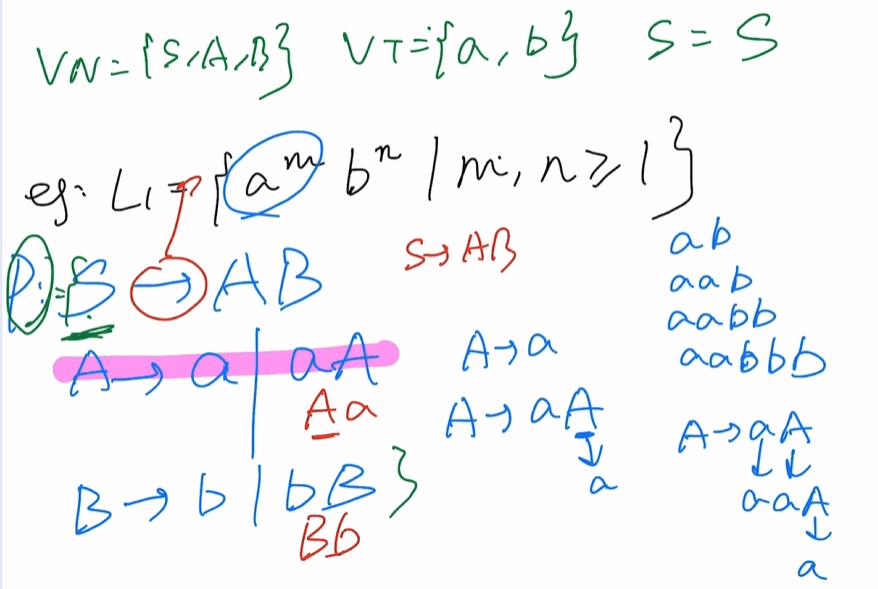 VN={S,A,B} VT={a,b} S=S
eg: L1={a^m b^n | m,n≥1}
P:={S→AB
S→AB
A→a | aA
Aa
B→b | bB}
Bb
A→a
A→aA
a
ab
aab
aabb
aabbb
A→aA
aaA
a